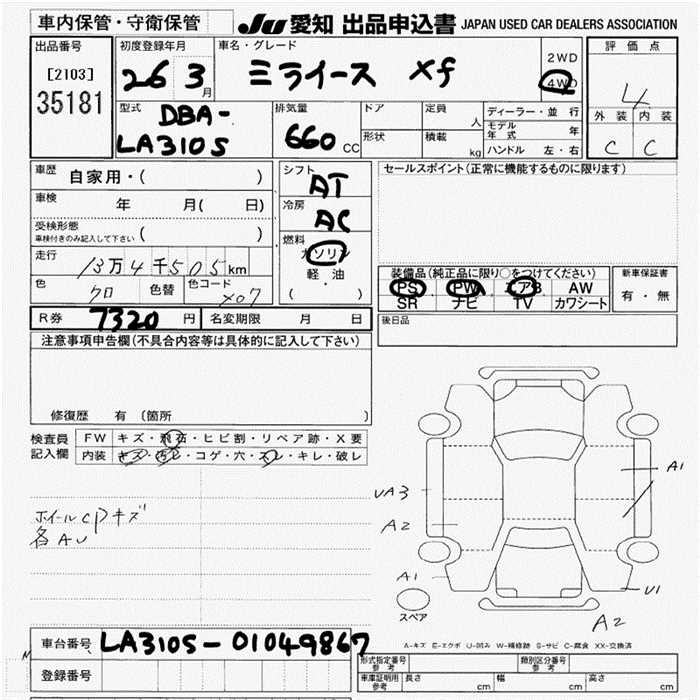 車内保管・守衛保管
JU 愛知 出品申込書 JAPAN USED CAR DEALERS ASSOCIATION
出品番号
[2103]
35181
初度登録年月
26 3月
車名・グレード
ミライース Xf
2WD
4WD
評価点
4
外装 内装
C C
型式
DBA-
LA310S
排気量
660 CC
ドア
形状
定員 人
積載 kg
ディーラー・並行
モデル年式 年
ハンドル 左・右
車歴
自家用・( )
車検 年 月( 日)
受検形態
車検付きのみ記入して下さい ( )
走行
13万4千505km
色 クロ 色替 色コード X07
シフト
AT
冷房
AC
燃料
ガソリン
軽油
( ・ )
セールスポイント(正常に機能するものに限ります)
装備品(純正品に限り○をつけてください)
PS PW エアB AW
SR ナビ TV カワシート
新車保証書
有・無
後日品
R券 7320 円 名変期限 月 日
注意事項申告欄(不具合内容等は具体的に記入して下さい)
修復歴 有 (箇所 )
検査員記入欄
FW キズ・飛石・ヒビ割・リペア跡・X要
内装 キズ・汚レ・コゲ・穴・スレ・キレ・破レ
ホイールCPキズ
各AU
A1
UA3
A2
A1
U1
A2
スペア
A-キズ E-エクボ U-凹み W-補修跡 S-サビ C-腐食 XX-交換済
車台番号 LA310S-01049867
登録番号
形式指定番号 参考
類別区分番号 参考
車庫証明用 参考
長さ cm 幅 cm 高さ cm